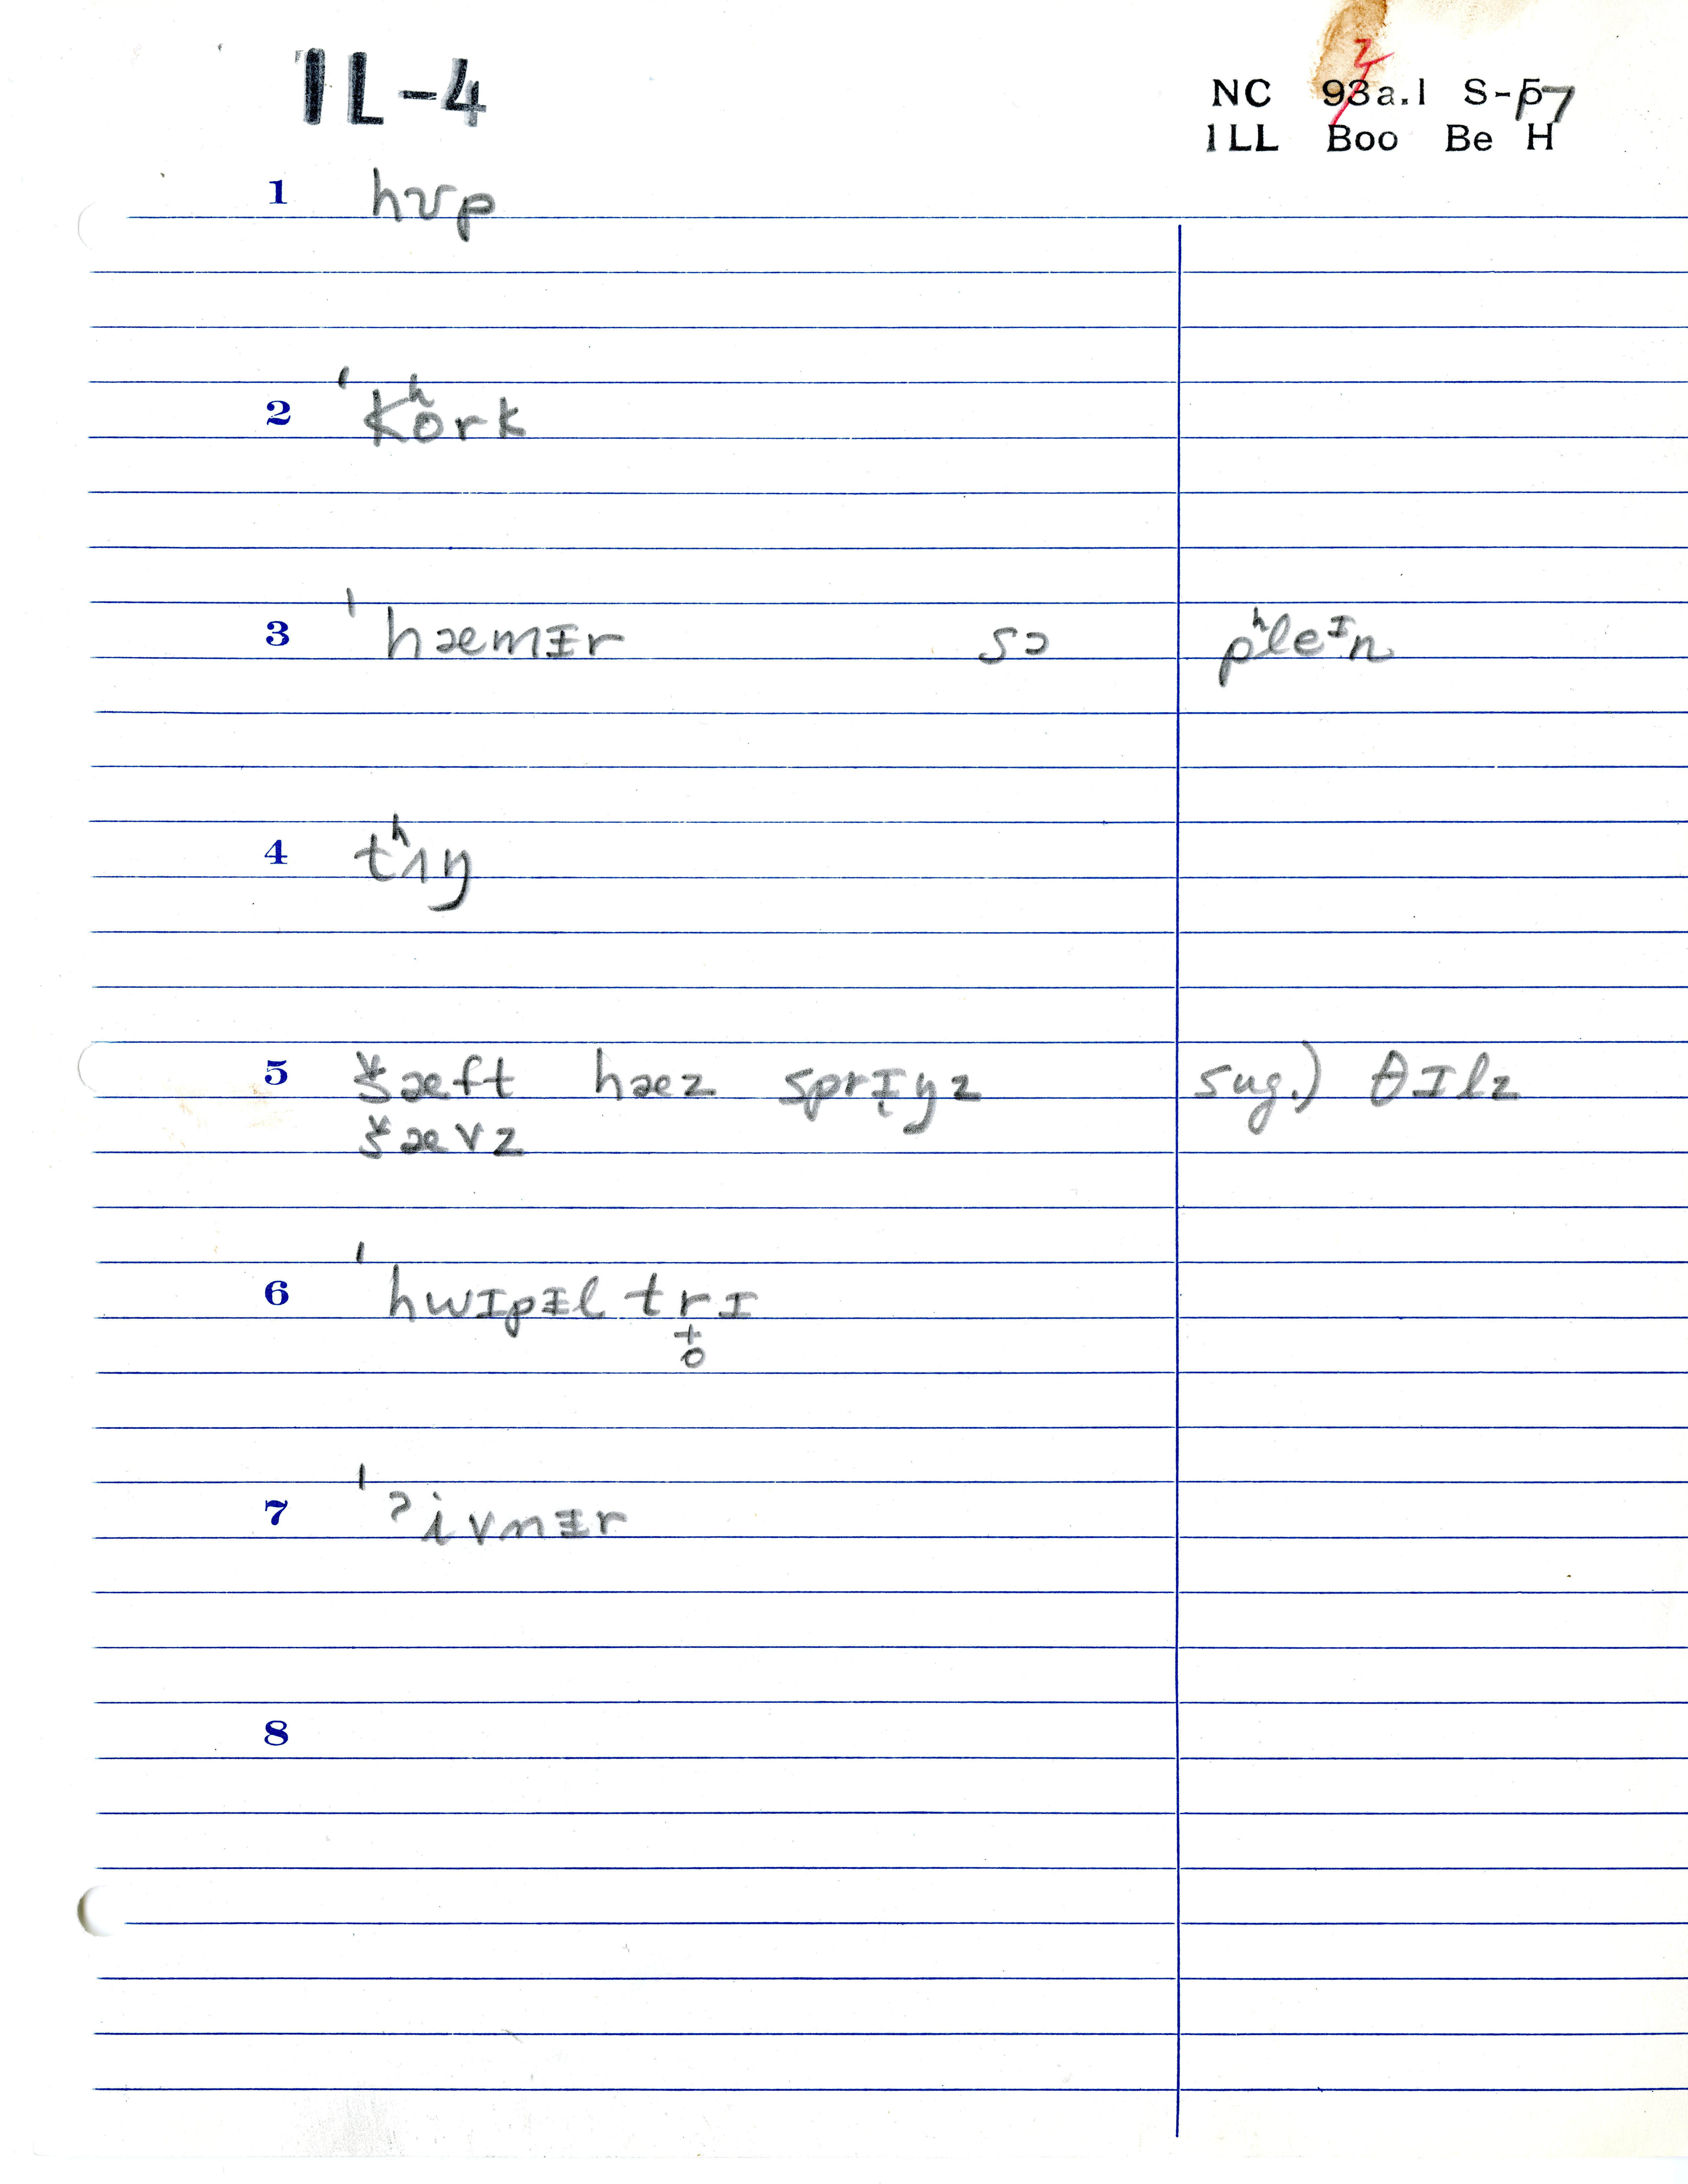 IL-4
NC 92a.1 S-57
ILL Boo Be H
1 hʊp
2 ˈkʰork
3 ˈhæmɨr sɔ pʰleᴵn
4 tʰʌŋ
5 š̬æft hæz sprɪ̨ŋz sug.) θɪlz
š̬ævz
6 ˈhwɪpɨltr̥̟ɪ
7 ˈʔivnɨr
8